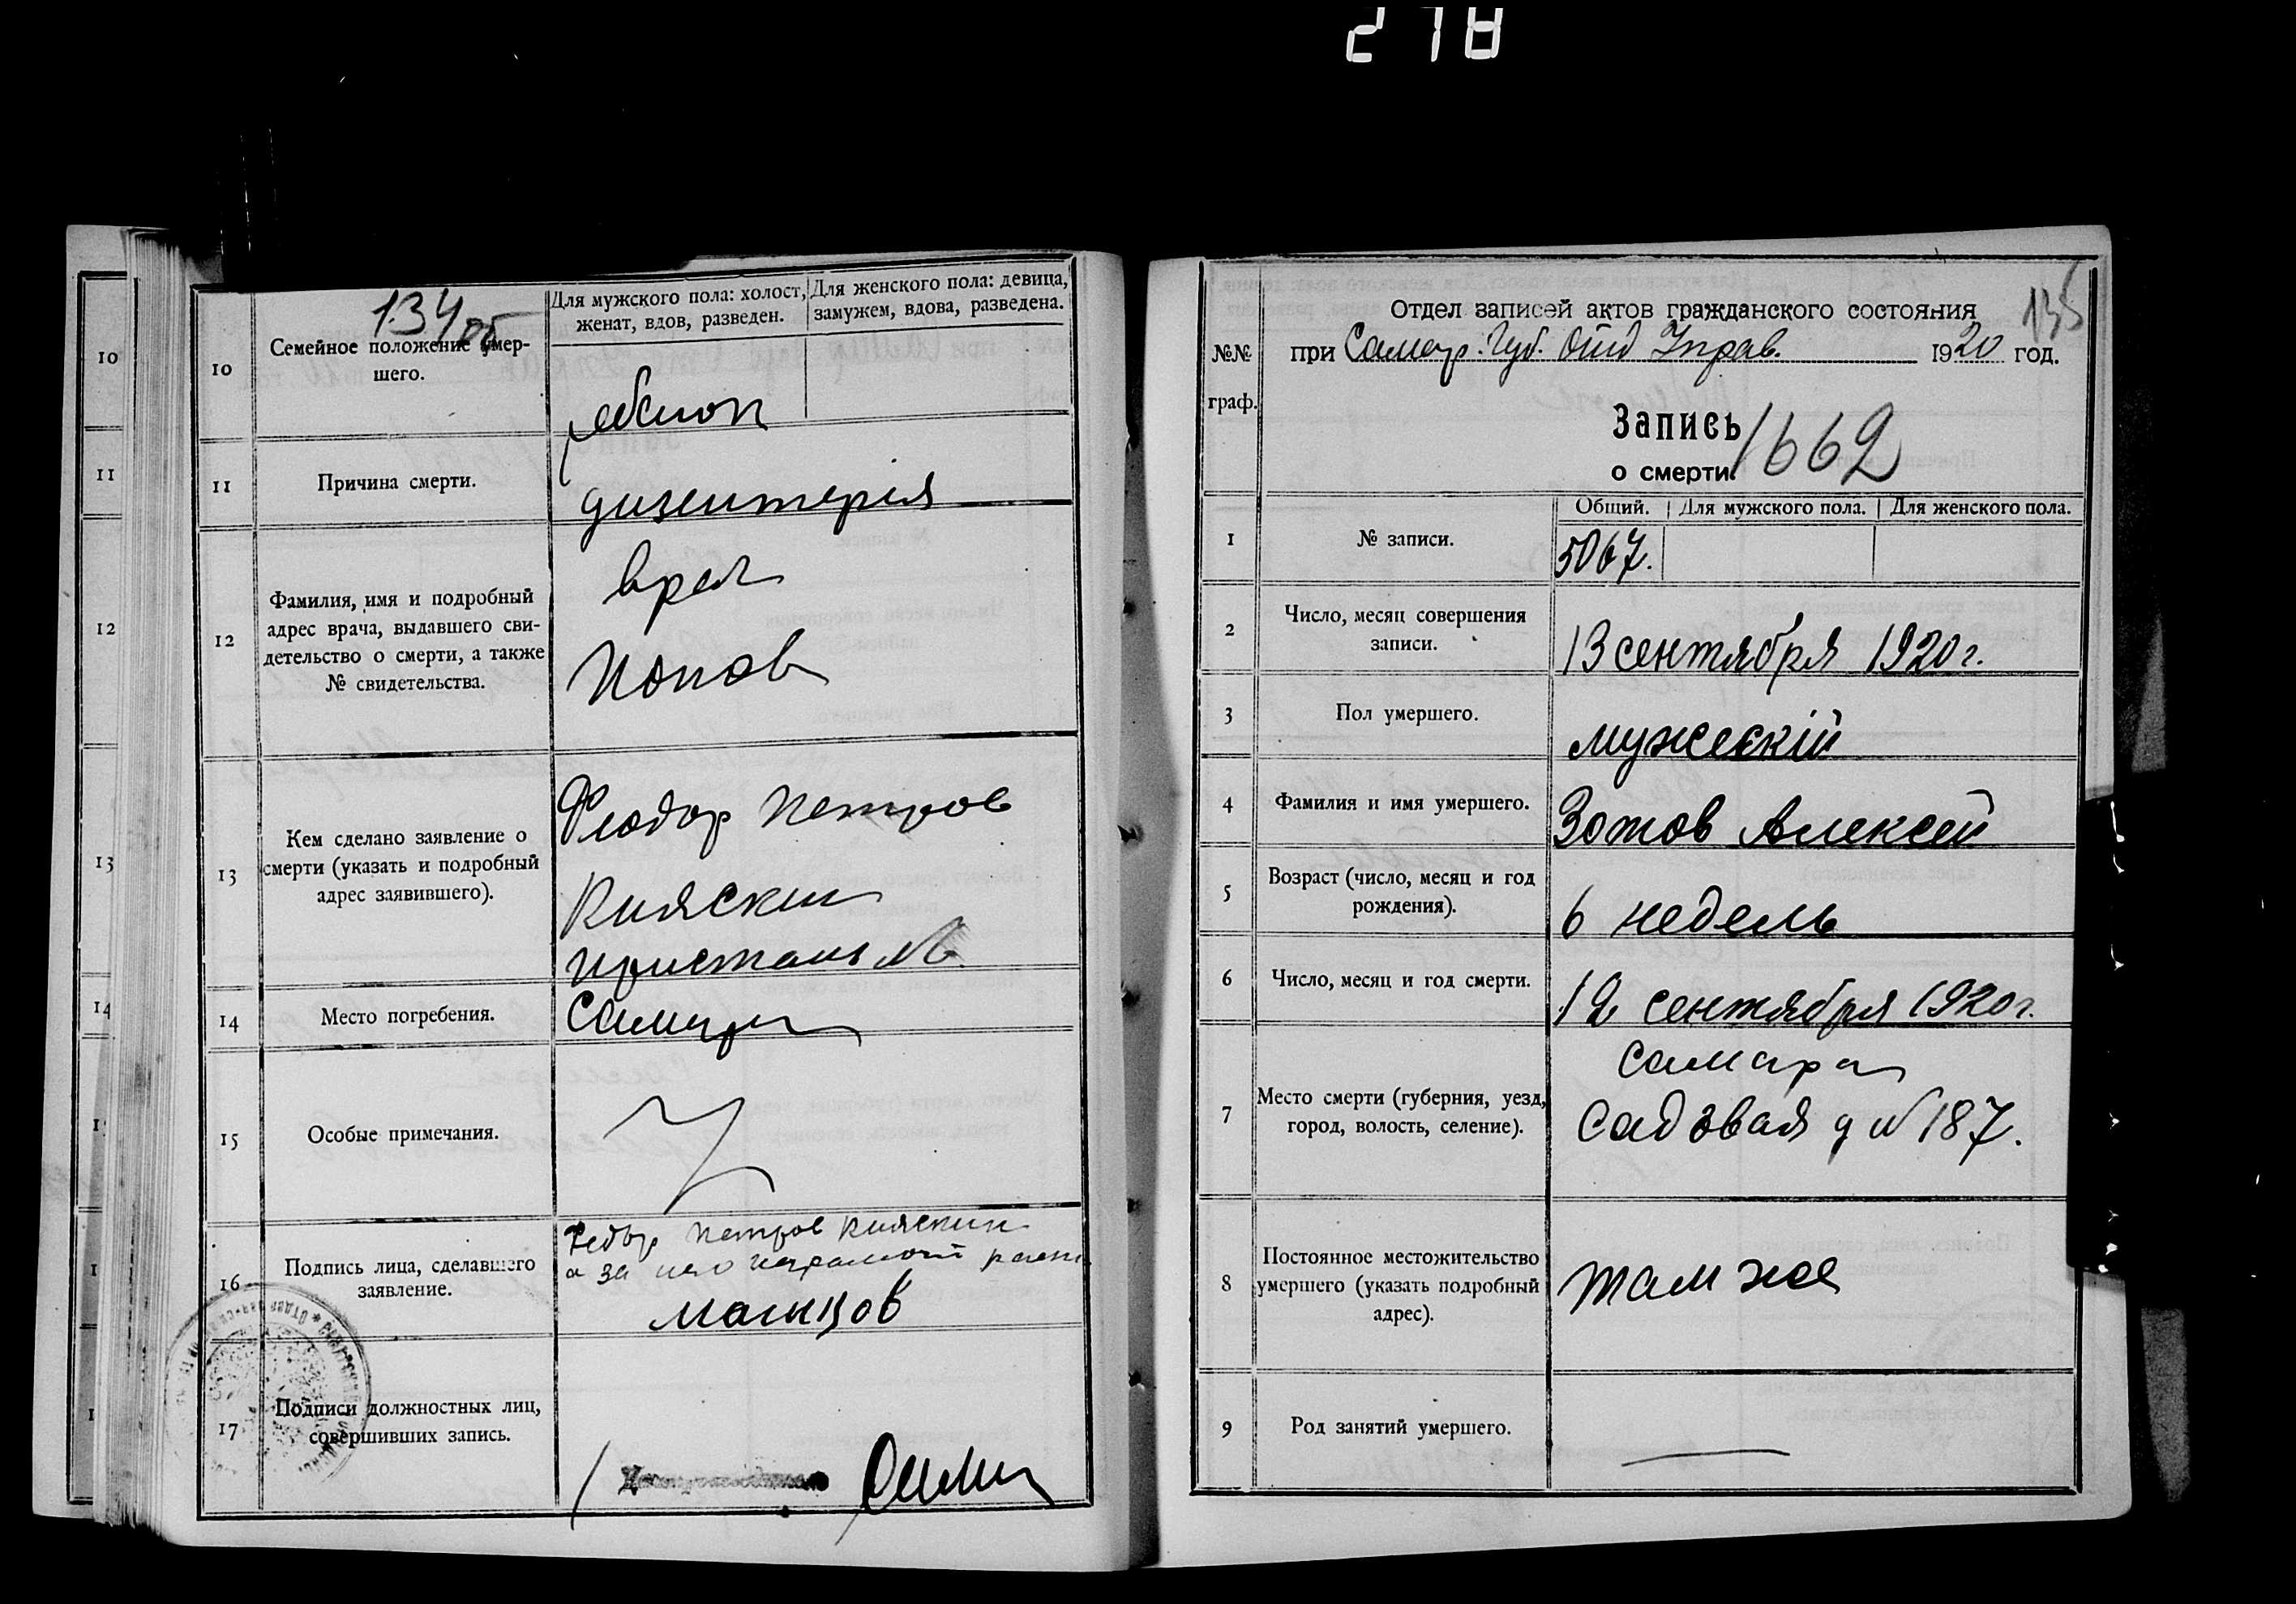 278
134 об
10
Семейное положение умер-
шего.
Для мужского пола: холост,
женат, вдов, разведен.
Для женского пола: девица,
замужем, вдова, разведена.
11
Причина смерти.
дизентерія
12
Фамилия, имя и подробный
адрес врача, выдавшего сви-
детельство о смерти, а также
№ свидетельства.
врач
Попов
13
Кем сделано заявление о
смерти (указать и подробный
адрес заявившего).
Феодор Петров
Князькин
пристань №
14
Место погребения.
Самара
15
Особые примечания.
16
Подпись лица, сделавшего
заявление.
Федор Петров
а за него неграмот расп.
17
Подписи должностных лиц,
совершивших запись.
10
11
12
13
14
№№
граф.
Отдел записей актов гражданского состояния
135
при Самар. Губ. Отд Управ. 1920 год.
Запись
о смерти. 1662
1
№ записи.
Общий. Для мужского пола. Для женского пола.
5067.
2
Число, месяц совершения
записи.
13 сентября 1920 г.
3
Пол умершего.
мужескій
4
Фамилия и имя умершего.
Зотов Алексей
5
Возраст (число, месяц и год
рождения).
6 недель
6
Число, месяц и год смерти.
12 сентября 1920 г.
7
Место смерти (губерния, уезд,
город, волость, селение).
Самара
Садовая д № 187.
8
Постоянное местожительство
умершего (указать подробный
адрес).
там же
9
Род занятий умершего.